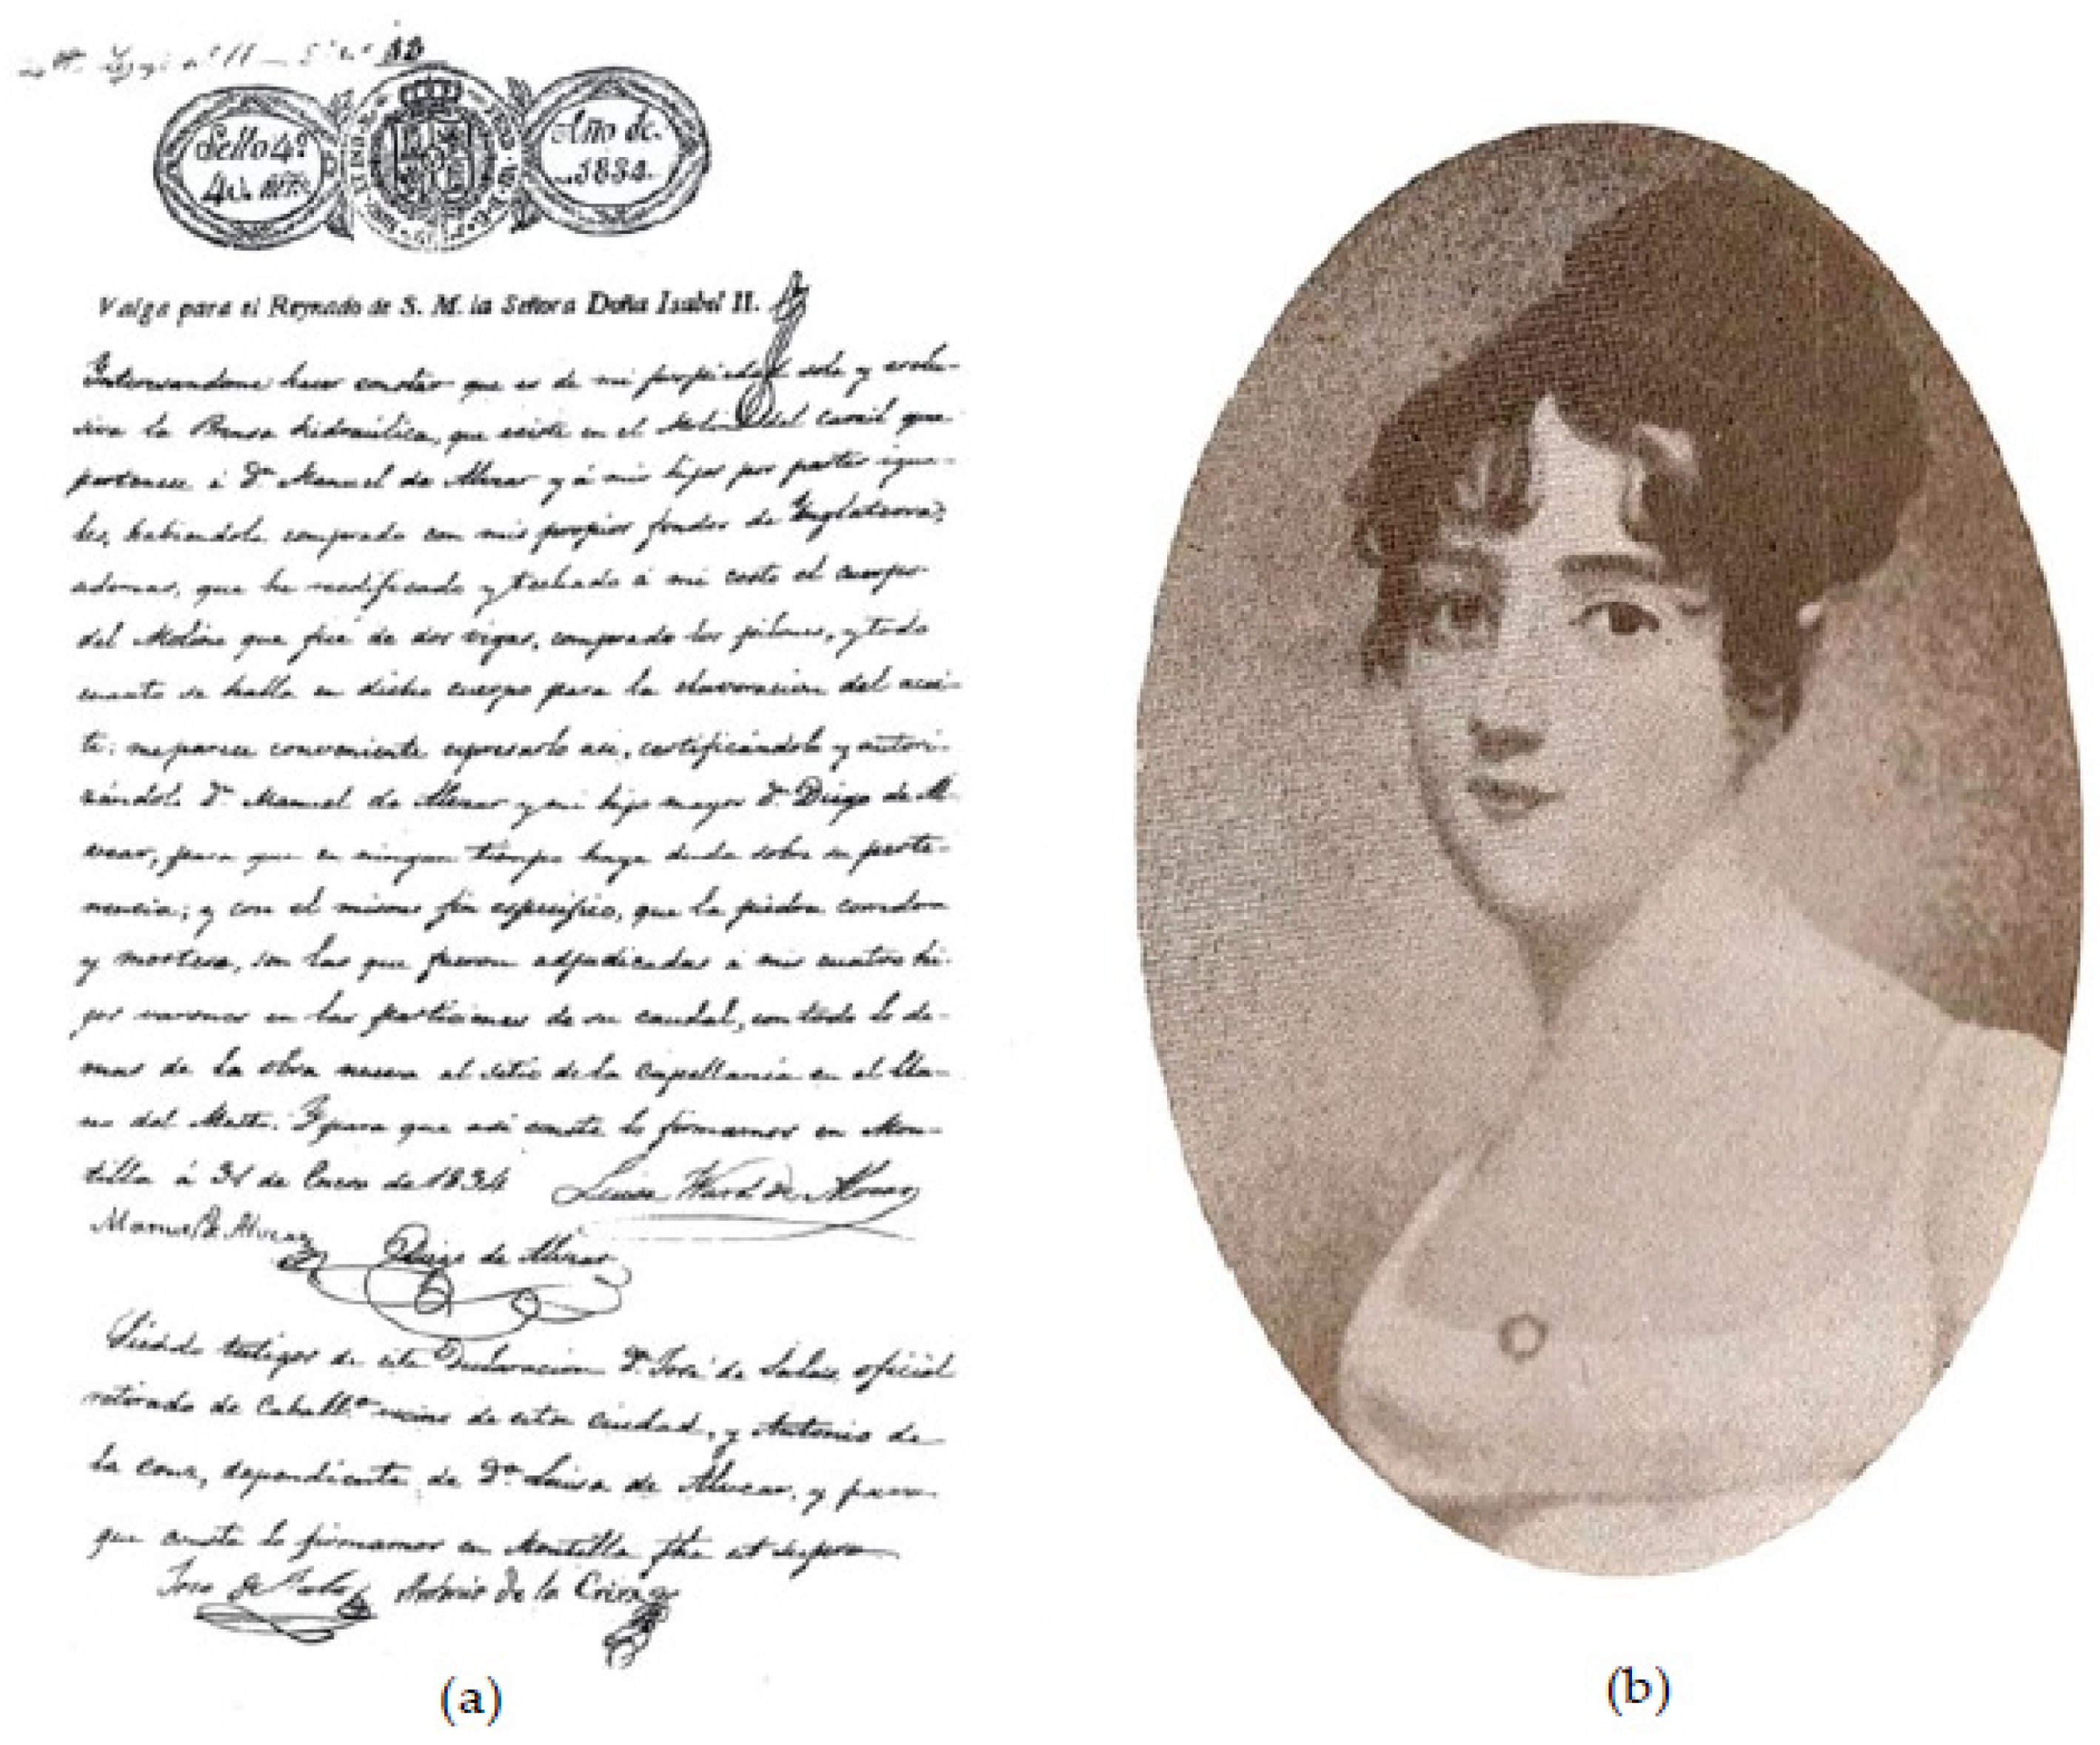 Sello 4º
40 mrs
Año de
1834.
Valga para el Reynado de S. M. la Señora Doña Isabel II.
Interesandome hacer constar que es de mi propiedad sola y esclu-
siva la Prensa hidraúlica, que existe en el Molino del Carril que
pertenece á Dn Manuel de Alvear y á mis hijos por partes igua-
les, habiendola comprado con mis propios fondos de Inglaterra;
ademas, que he reedificado y techado á mi costa el cuerpo
del Molino que fué de dos vigas, comprado los pilones, y todo
cuanto se halla en dicho cuerpo para la elavoracion del acei-
te: me parece conveniente espresarlo asi, certificándolo y autori-
zándolo Dn Manuel de Alvear y mi hijo mayor Dn Diego de Al-
vear, para que en ningun tiempo haya duda sobre su perte-
nencia; y con el mismo fin especifico, que la piedra corredora
y mortero, son las que fueron adjudicadas á mis cuatro hi-
jos varones en las particiones de su caudal, con todo lo de-
mas de la obra nueva al sitio de la Capellania en el Lla-
no del Mesto. Y para que asi conste lo firmamos en Mon-
tilla á 31 de Enero de 1834 Luisa Ward de Alvear
Manuel de Alvear
Diego de Alvear
Siendo testigos de esta Declaracion Dn José de Salas oficial
retirado de Caballa vecino de esta ciudad, y Antonio de
la Cruz, dependiente de Da Luisa de Alvear, y para
que conste lo firmamos en Montilla fha ut supra
José de Salas Antonio de la Cruz
(a)
(b)